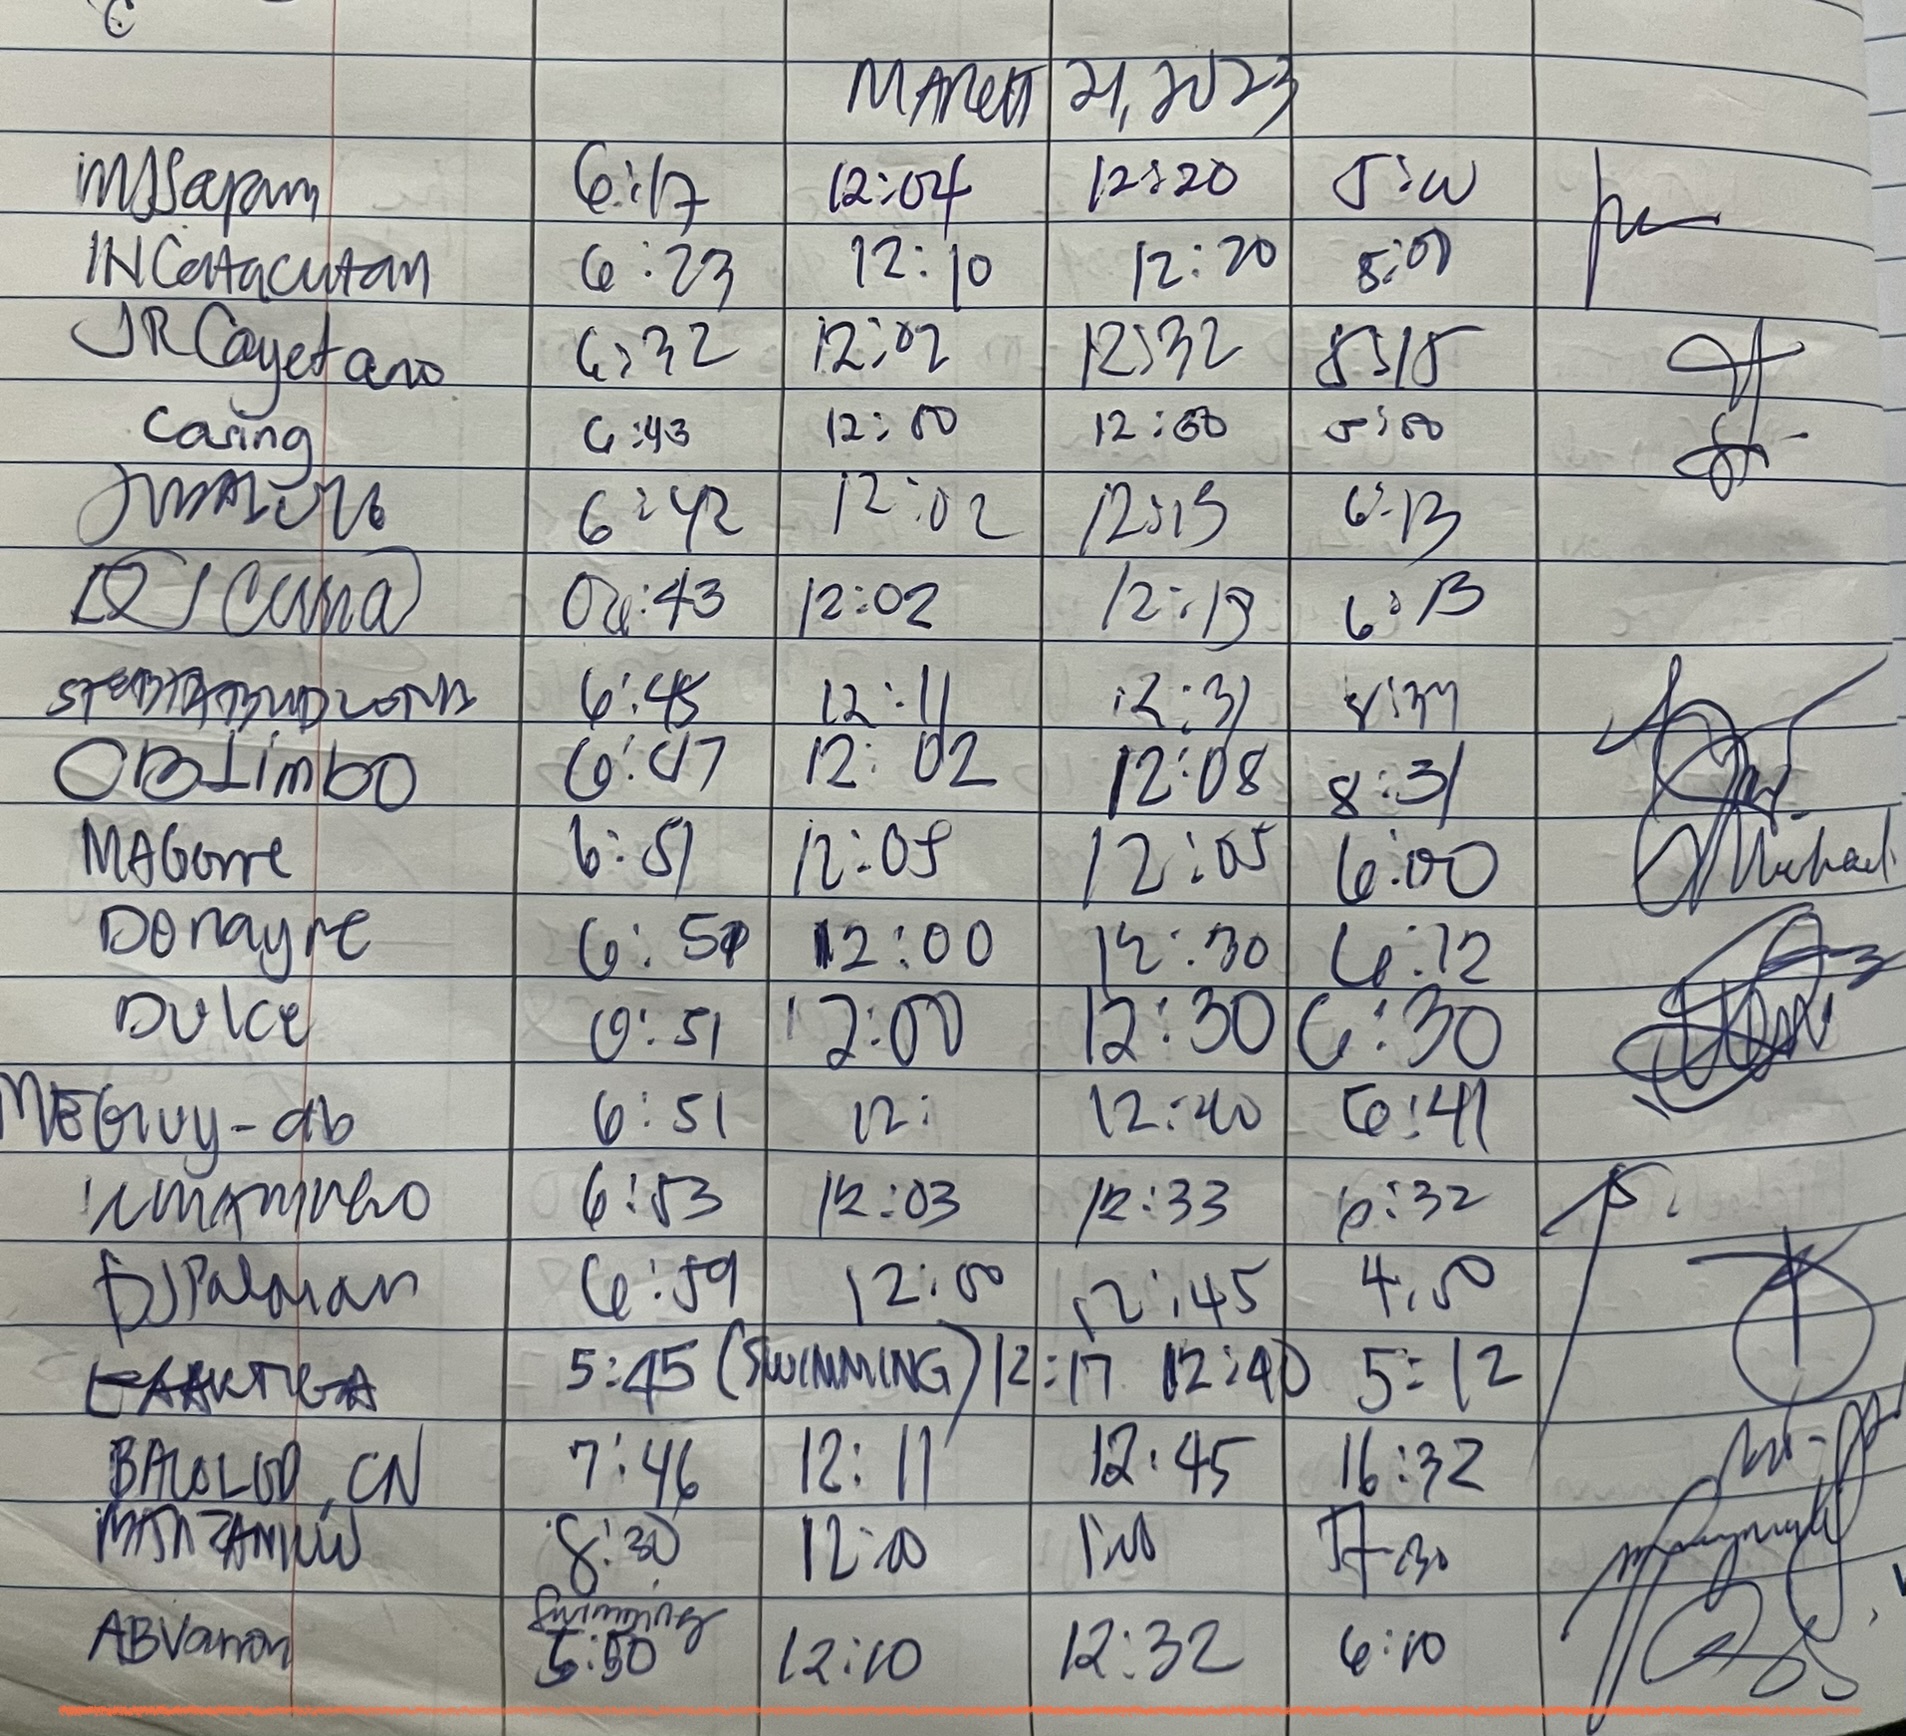 MARCH 21, 2023
MJSapam 6:17 12:04 12:20 5:00
INCatacutan 6:23 12:10 12:20 5:00
JRCayetano 6:32 12:02 12:32 8:18
Casing 6:43 12:00 12:00 5:00
6:42 12:02 12:13 6:13
06:43 12:02 12:13 6:13
6:45 12:11 12:31
OBLimbo 6:47 12:02 12:08 8:31
MAGorre 6:51 12:05 12:05 6:00 Michael
Donayre 6:50 12:00 12:30 6:12
Dulce 6:51 12:00 12:30 6:30
MEGuy-ab 6:51 12: 12:40 6:41
6:53 12:03 12:33 6:32
DJPalman 6:59 12:00 12:45 4:50
5:45 (SWIMMING) 12:17 12:40 5:12
BACOLOD, CN 7:46 12:11 12:45 16:32
8:30 12:00 1:00
Swimming
ABVanon 5:50 12:10 12:32 6:10